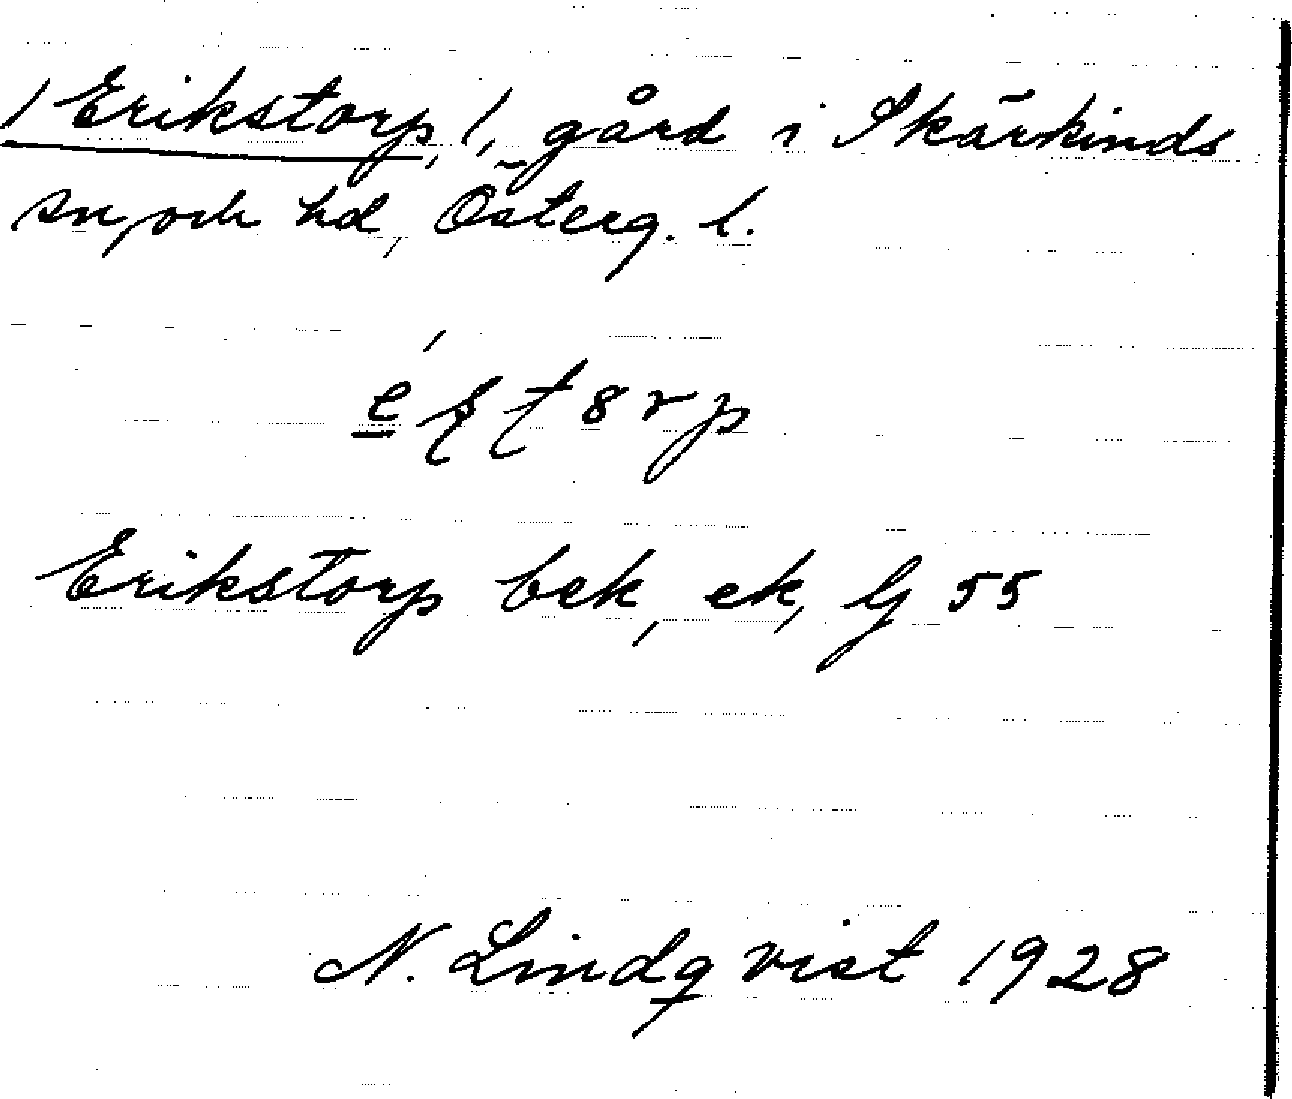 /Erikstorp, /, gård i Skärkinds
sn, och hd, Österg. l.
Erikstorp bek, ek, G 55
N. Lindqvist 1928